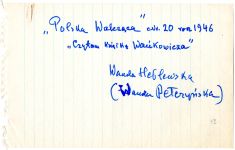 "Polska Walcząca" nr. 20 rok 1946
"Czytam książkę Wańkowicza"
Wanda Heflewska
(Wanda Pełczyńska)